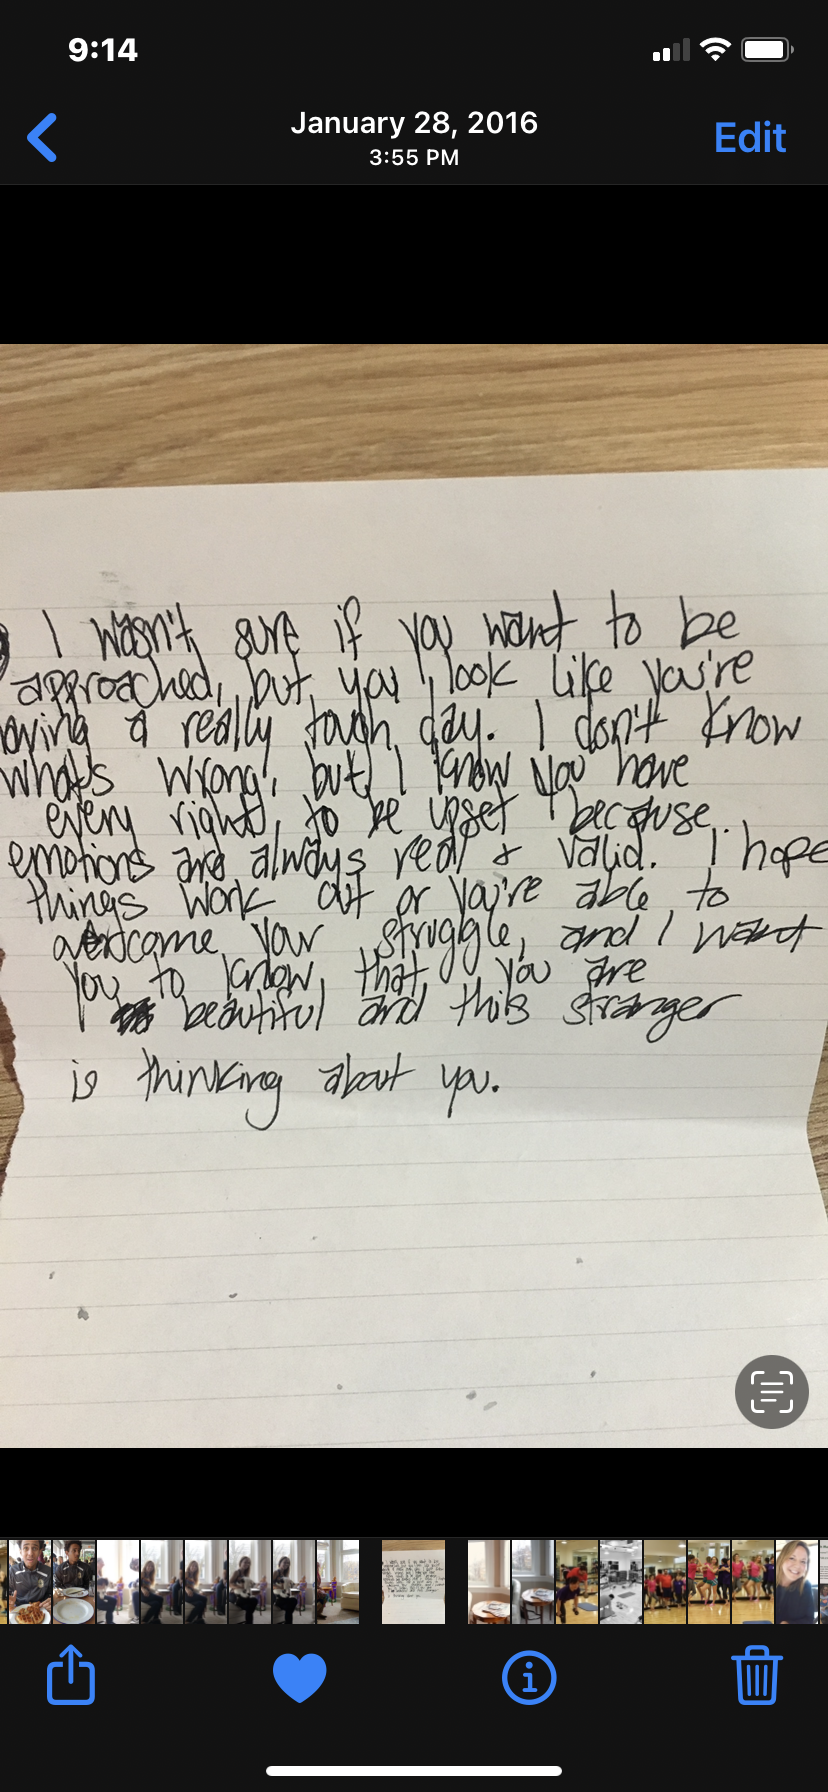 9:14
January 28, 2016
3:55 PM
Edit
I wasn't sure if you want to be
approached, but you look like you're
aving a really tough day. I don't know
what's wrong, but I know you have
every right to be upset because
emotions are always real & valid. I hope
things work out or you're able to
overcome your struggle, and I want
you to know that you are
beautiful and this stranger
is thinking about you.